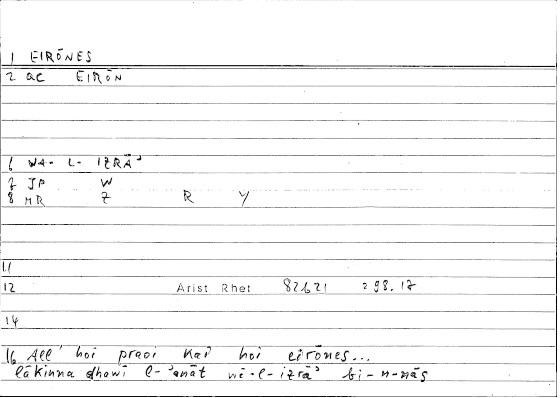 1 EIRŌNES
2 ac EIRŌN
6 WA- L- IZRĀʾ
7 JP W
8 MR Z R Y
11
12 Arist Rhet 82b21 298.17
14
16 All' hoi praoi kai hoi eirōnes...
lākinna dhawī l-ʾanāt wa-l-izrāʾ bi-n-nās